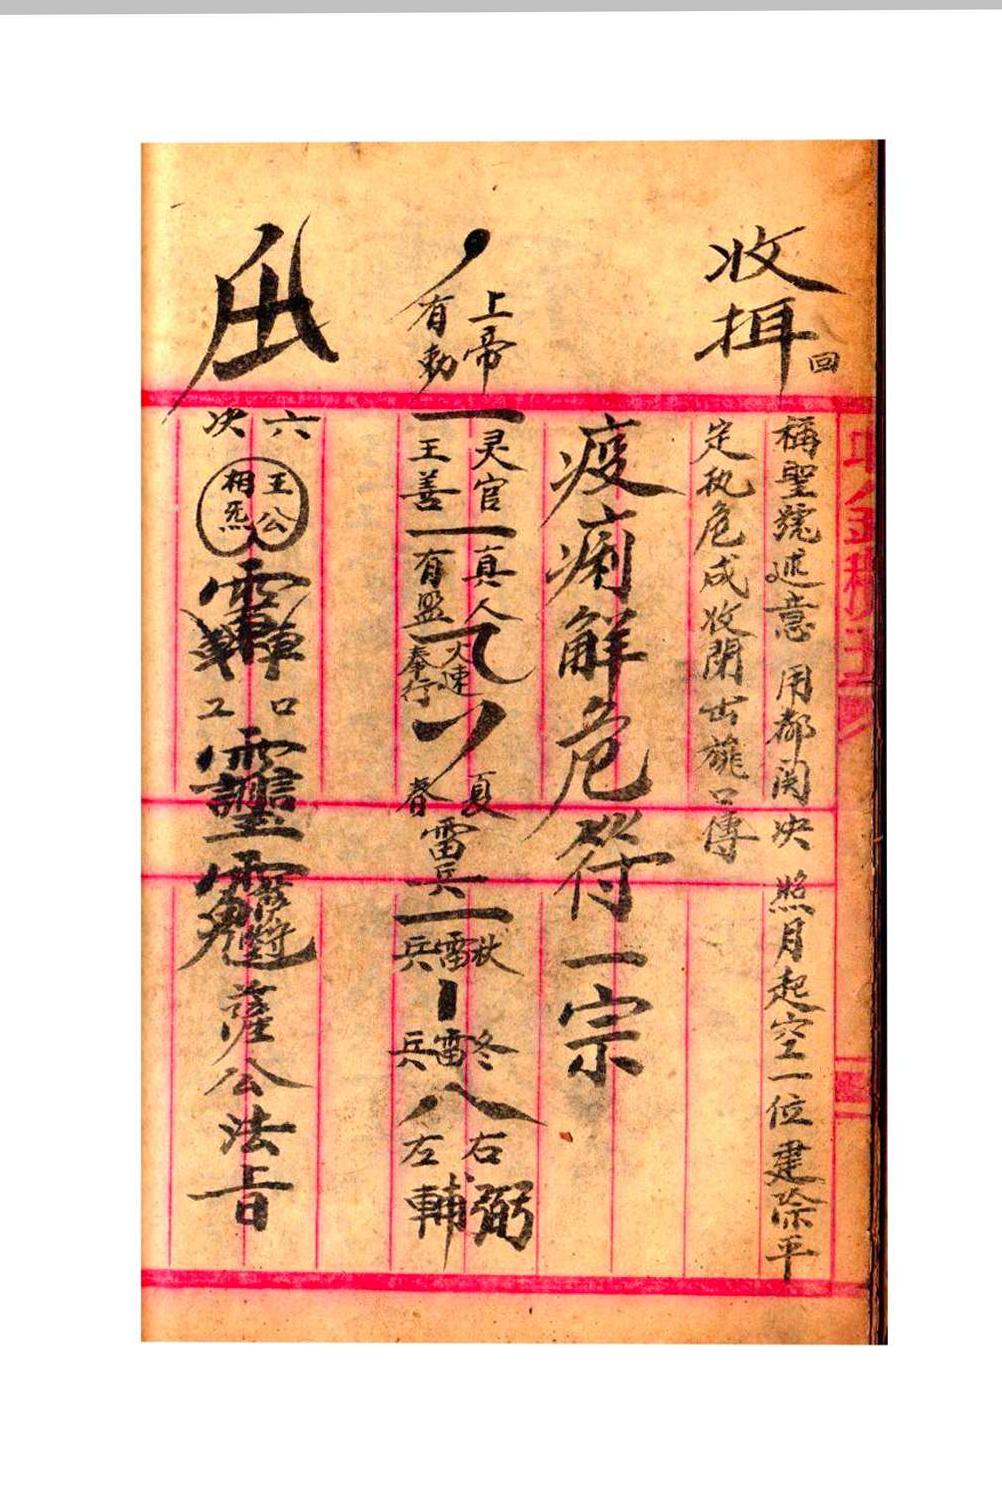 收
回
稱聖號述意 用都関决 照月起空一位建除平
定执危成收閉出旒口傳
疫痢解危符一宗
上帝
有勅
灵官
王善
真人
有盟
火速
奉行
夏
春
雷兵
秋雷兵
冬雷兵
右弼
左輔
六
次
王公
相炁
口
工
薩公法旨